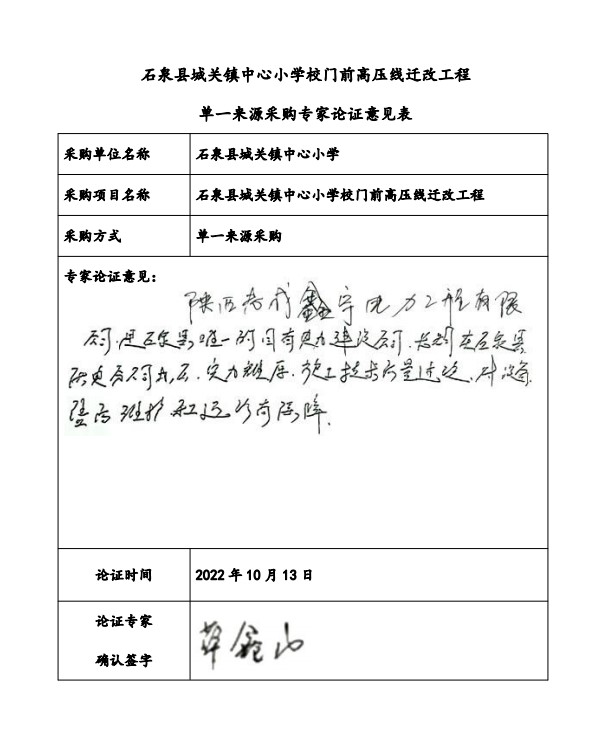 石泉县城关镇中心小学校门前高压线迁改工程
单一来源采购专家论证意见表
采购单位名称 石泉县城关镇中心小学
采购项目名称 石泉县城关镇中心小学校门前高压线迁改工程
采购方式 单一来源采购
专家论证意见：
陕西 鑫宇电力工程有限
公司，是石泉县唯一的 电力建设公司，长期在石泉县
供电公司 ，实力雄厚，施工技术质量过硬，对设备
维护和运行有保障。
论证时间 2022年10月13日
论证专家
确认签字